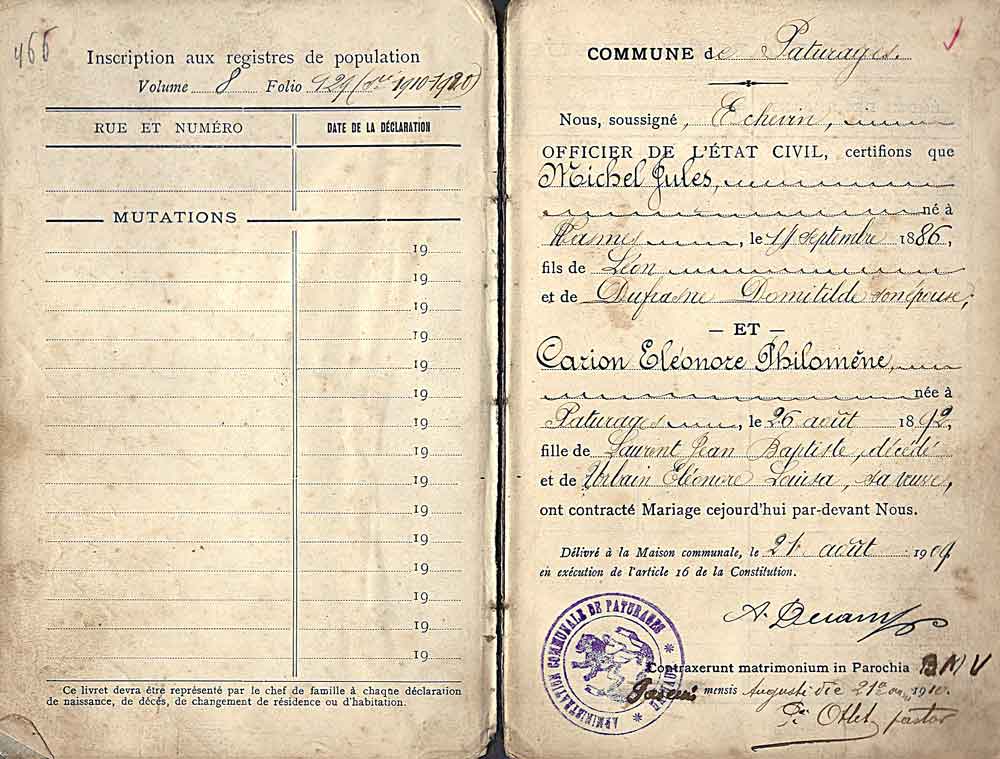 466
Inscription aux registres de population
Volume 8 Folio 929 (1910-1920)
RUE ET NUMÉRO DATE DE LA DÉCLARATION
MUTATIONS
19
19
19
19
19
19
19
19
19
19
19
19
19
19
19
Ce livret devra être représenté par le chef de famille à chaque déclaration
de naissance, de décès, de changement de résidence ou d'habitation.
COMMUNE de Paturages.
Nous, soussigné, Echevin,
OFFICIER DE L'ÉTAT CIVIL, certifions que
Michel Jules,
né à
Wasmes, le 11 Septembre 1886,
fils de Léon
et de Dufrasne Domitilde son épouse;
— ET —
Carion Eléonore Philomène,
née à
Paturages, le 26 août 1892,
fille de Laurent Jean Baptiste, décédé
et de Urbain Eléonore Louisa, sa veuve,
ont contracté Mariage cejourd'hui par-devant Nous.
Délivré à la Maison communale, le 21 août 1909
en exécution de l'article 16 de la Constitution.
ADMINISTRATION COMMUNALE DE PATURAGES * HAINAUT *
Contraxerunt matrimonium in Parochia BMV
mensis Augusti die 21a 1910.
pastor